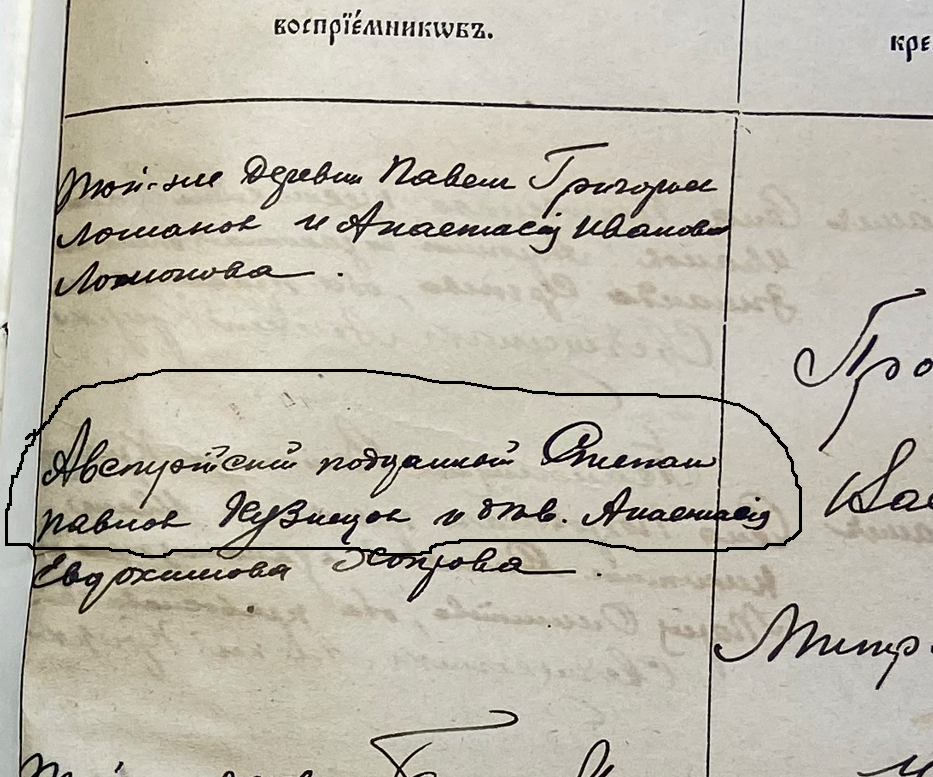 воспрїе́мникѡвъ.
кре
Той-же деревни Павел Григорьев
Ломанов и Анастасія Иванова
Ломонова.
Про
Австрійский подданной Степан
Павлов Кузнецов и дѣв. Анастасія
Евдокимова Хопрова.
Вас
Митр